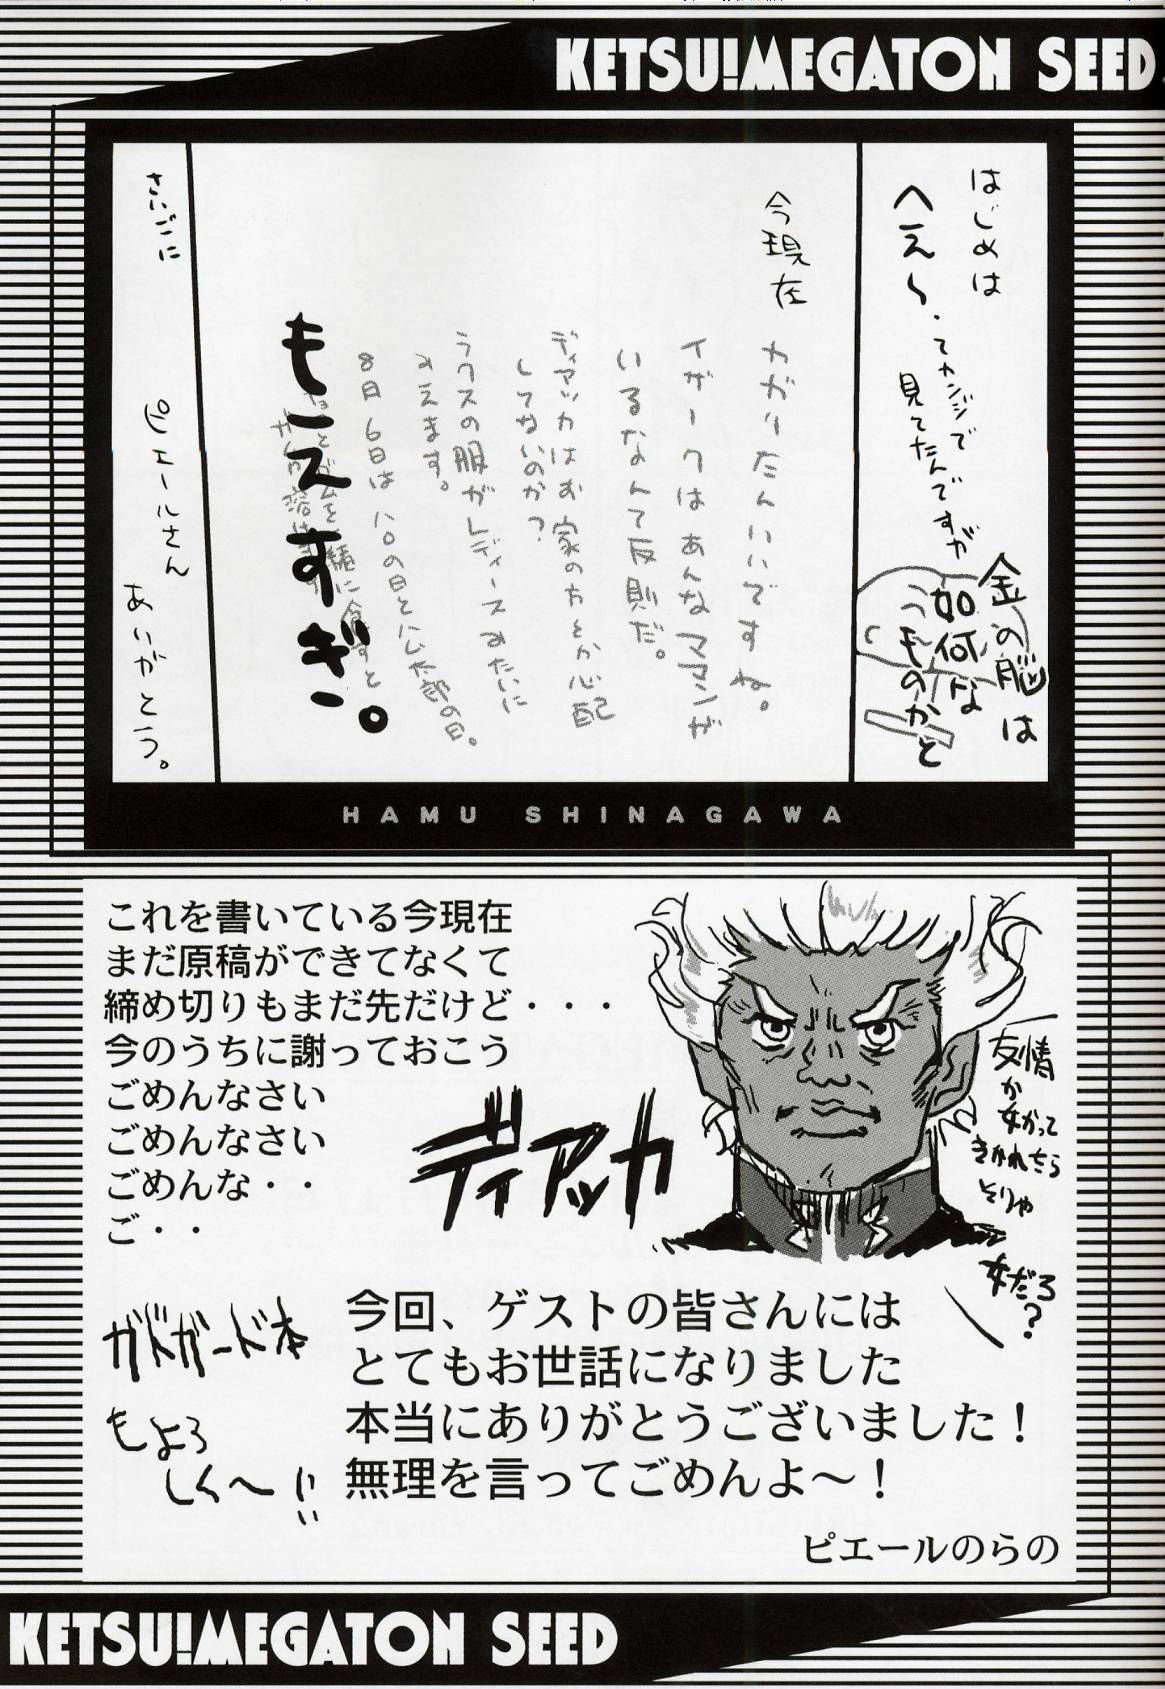 KETSU!MEGATON SEED
はじめは
へえ〜・てカンジで
見てたんですが
金の脳は
如何な
ものかと
今現在
カガリたんいいですね。
イザークはあんなママンが
いるなんて反則だ。
ディアッカはお家の方とか心配
してないのか?
ラクスの服がレディースみたいに
みえます。
8月6日はハムの日とハム太郎の日。
もえすぎ。
さいごに
ピエールさん
ありがとう。
HAMU SHINAGAWA
これを書いている今現在
まだ原稿ができてなくて
締め切りもまだ先だけど・・・
今のうちに謝っておこう
ごめんなさい
ごめんなさい
ごめんな・・
ご・・
ディアッカ
友情
か
女かって
きかれたら
そりゃ
女だろ
?
ガドガード本
もよろ
しく〜!!
今回、ゲストの皆さんには
とてもお世話になりました
本当にありがとうございました!
無理を言ってごめんよ〜!
ピエールのらの
KETSU!MEGATON SEED